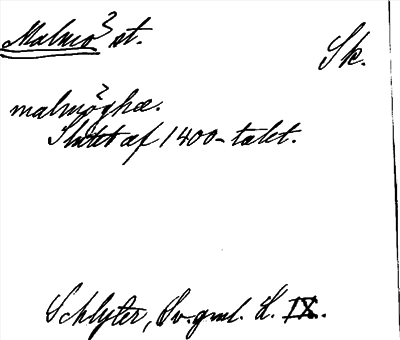 Malmö st. Sk.
malmöghæ.
Slutet af 1400-talet.
Schlyter, Sv. gml. L. IX.